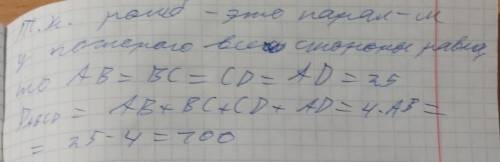 Т.к. ромб - это парал-м
у которого все стороны равны,
то AB = BC = CD = AD = 25
P_ABCD = AB + BC + CD + AD = 4 · AB =
= 25 · 4 = 100